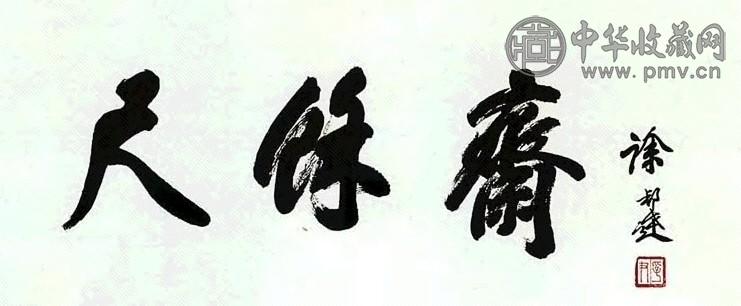 中华收藏网
www.pmv.cn
尺餘齋
徐邦達